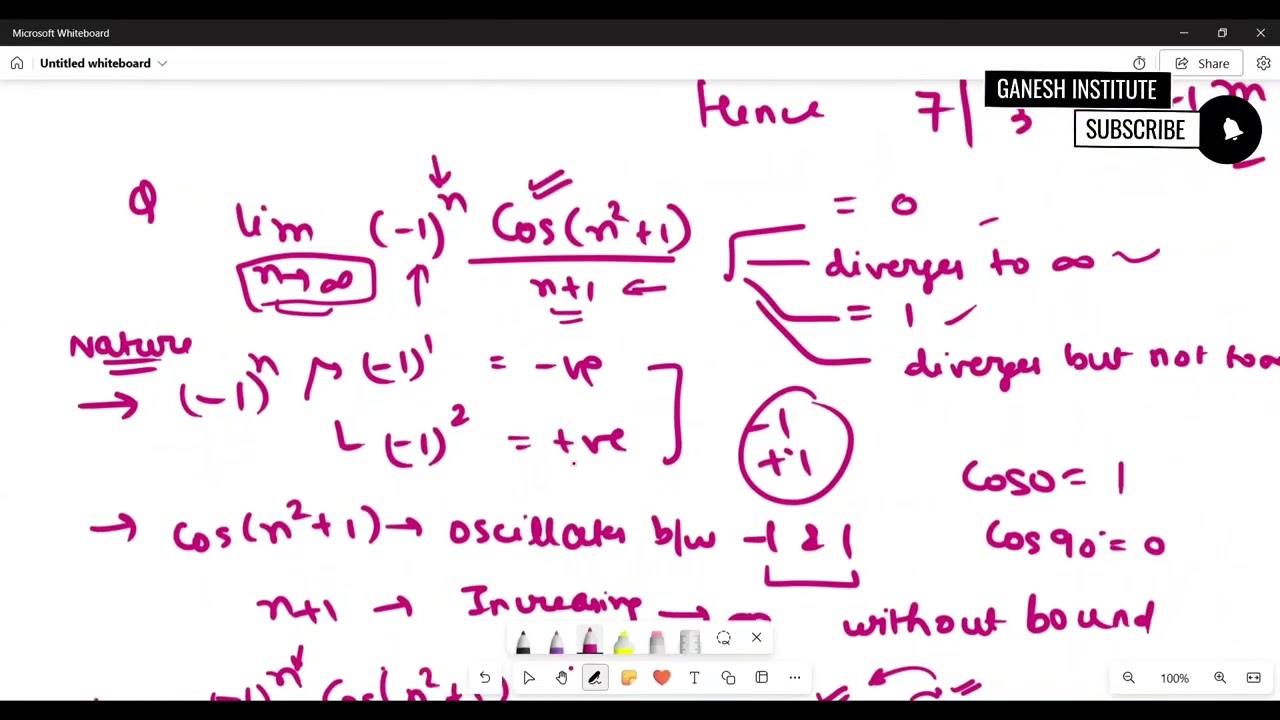 Microsoft Whiteboard
Untitled whiteboard
Share
GANESH INSTITUTE
SUBSCRIBE
Hence 7 | 3 -1
Q lim n→∞ (-1)^n Cos(n²+1) / n+1
= 0
diverges to ∞
= 1
diverges but not to
Nature
→ (-1)^n (-1)^1 = -ve
(-1)^2 = +ve
-1
+1
Cos0 = 1
Cos90° = 0
→ Cos(n²+1) → oscillates b/w -1 & 1
n+1 → Increasing → ∞ without bound
Cos(n²+1)
100%